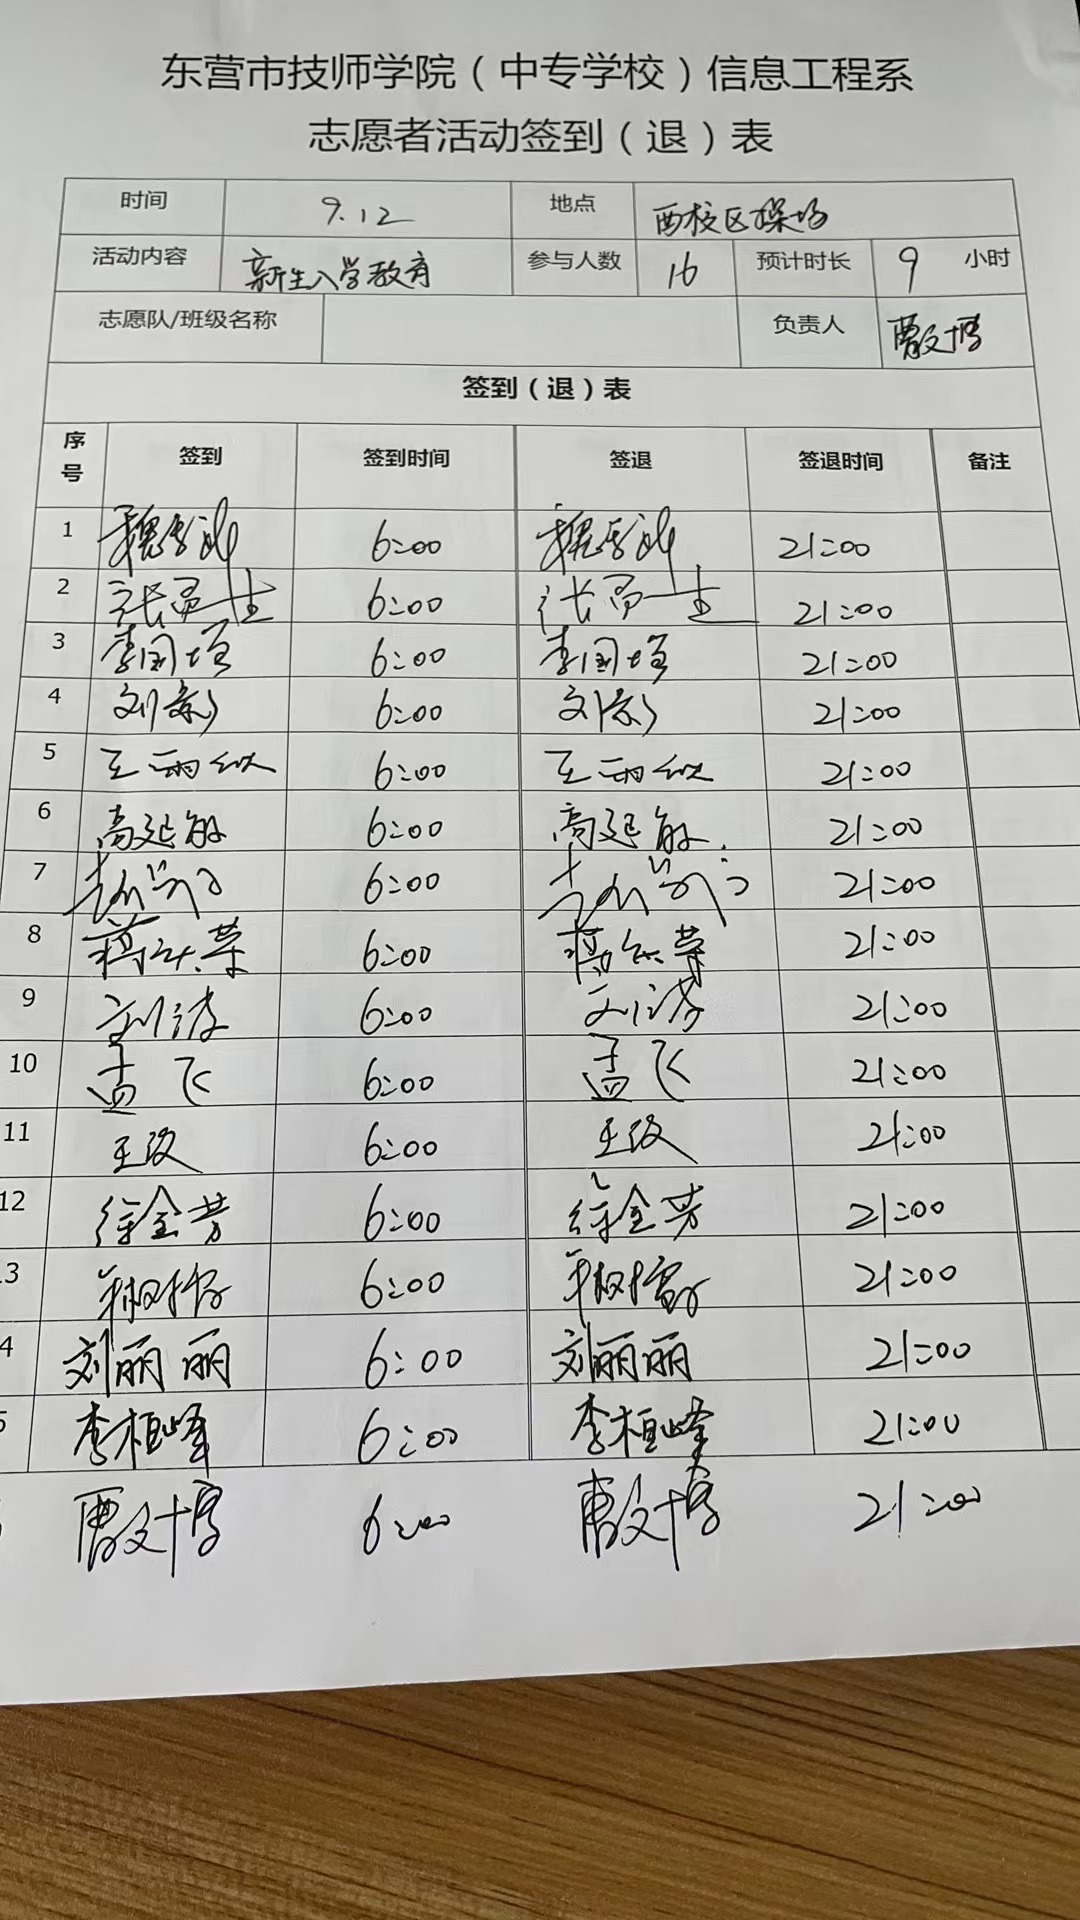 东营市技师学院（中专学校）信息工程系
志愿者活动签到（退）表
时间 9.12 地点 西校区操场
活动内容 新生入学教育 参与人数 16 预计时长 9 小时
志愿队/班级名称 负责人 曹文博
签到（退）表
序号 签到 签到时间 签退 签退时间 备注
1 6:00 21:00
2 6:00 21:00
3 李国增 6:00 李国增 21:00
4 刘彩 6:00 刘彩 21:00
5 6:00 21:00
6 高延敏 6:00 高延敏 21:00
7 6:00 21:00
8 6:00 21:00
9 刘涛 6:00 刘涛 21:00
10 孟飞 6:00 孟飞 21:00
11 王玫 6:00 王玫 21:00
12 徐金芳 6:00 徐金芳 21:00
3 6:00 21:00
4 刘丽丽 6:00 刘丽丽 21:00
5 李桓峰 6:00 李桓峰 21:00
曹文博 6:00 曹文博 21:00